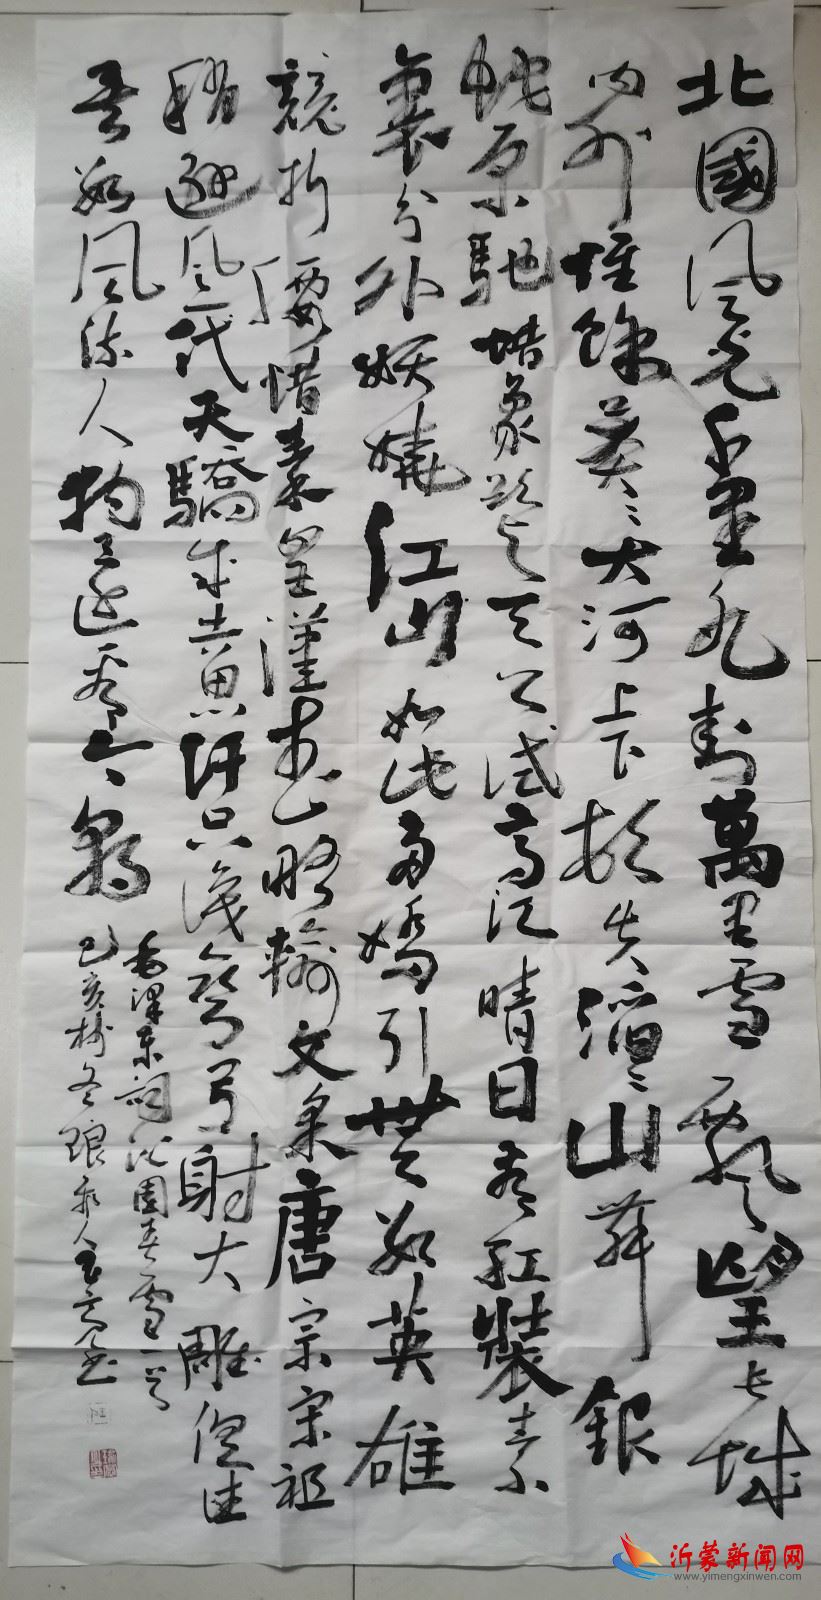 北國風光千里冰封萬里雪飄望長城
內外惟餘莽〻大河上下頓失滔〻山舞銀
蛇原馳蠟象欲與天公試高低晴日看紅裝素
裹分外妖嬈江山如此多嬌引無數英雄
競折腰惜秦皇漢武略輸文采唐宗宋祖
稍遜風騷一代天驕成吉思汗只識彎弓射大雕俱往
矣數風流人物還看今朝
毛澤東詞沁園春雪一首
己亥初冬琅琊人書
沂蒙新闻网
www.yimengxinwen.com